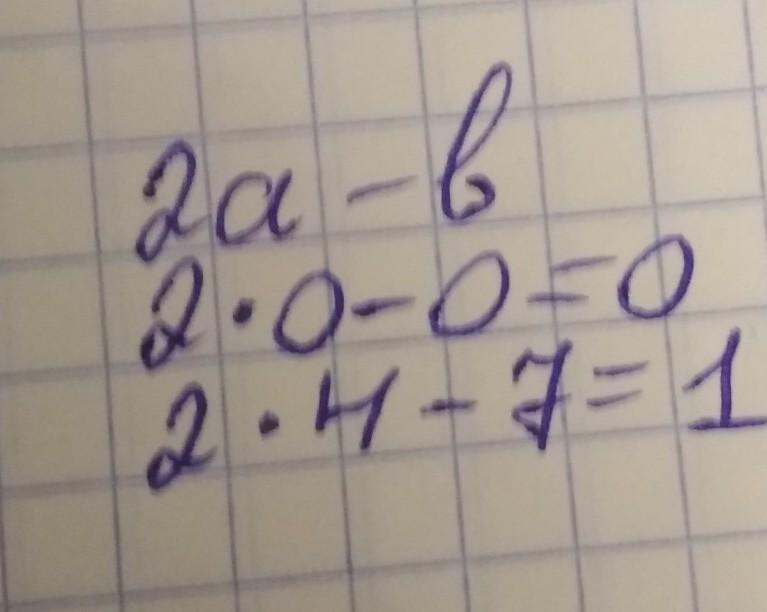 2a - b
2 · 0 - 0 = 0
2 · 4 - 7 = 1